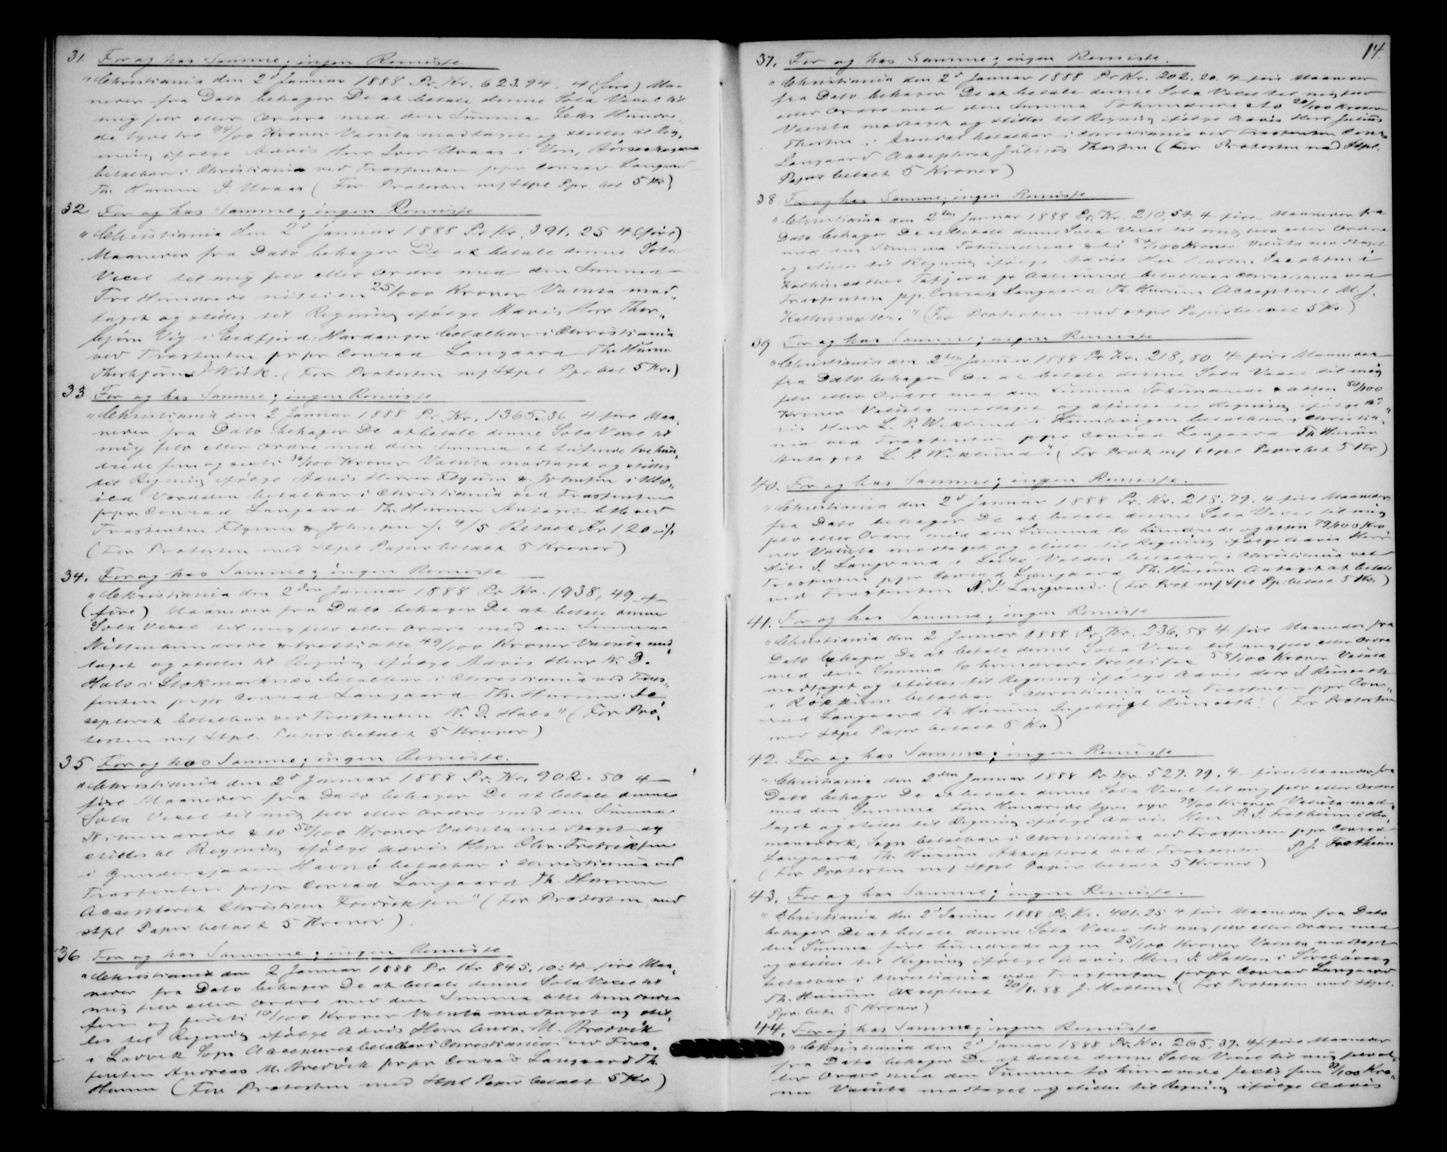 31 For og hos Samme; ingen Remisse.
"Christiania den 2' Januar 1888 Pr. Kr. 623,94. 4 (fire) Maa-
neder fra Dato behager De at betale denne Sola Vexel til
mig selv eller Ordre med den Summa Seks Hundre-
de tyve tre 94/100 Kroner Valuta modtaget og stilles til Reg-
ning ifølge Advis Herr Iver Unaas i
betalbar i Christiania ved Trassenten prpr Conrad Langaard
Th. Humm I. Unaas (For Protesten m/ Stpl Ppr. bet 5 Kr)
32 For og hos Samme; ingen Remisse
"Christiania den 2' Januar 1888 Pr. Kr. 391.25 4 (fire)
Maaneder fra Dato behager De at betale denne Sola
Vexel til mig selv eller Ordre med den Summa
Tre Hundrede nitien 25/100 Kroner Valuta mod-
taget og stilles til Regning ifølge Advis Herr Thor-
bjørn Vig i Eidfjord, Hardanger betalbar i Christiania
ved Trassenten pr pr Conrad Langaard Th. Humm
Thorbjørn J Wiik. (For Protesten m/ Stpl Ppr bet 5 Kr.)
33 For og hos Samme; ingen Remisse
"Christiania den 2 Januar 1888 Pr. Kr. 1365.36 4 fire Maa-
neder fra Dato behager De at betale denne Sola Vexel til
mig selv eller Ordre med den Summa et tusinde tre hun-
drede fem og sexti 36/100 Kroner Valuta modtaget og stilles
til Regning ifølge Advis Herrer & Johnsen i
Værdalen betalbar i Christiania ved Trassenten
prpr Conrad Langaard Th. Humm Antaget bet ved
Trassenten & Johnsen 4/5 Betalt Kr 120
(For Protesten med Stpl Papir betalt 5 Kroner)
34. For og hos Samme; ingen Remisse
"Christiania den 2den Januar 1888 Pr. Kr. 1938,49 4
(fire) Maaneder fra Dato behager De at betale denne
Sola Vexel til mig selv eller Ordre med den Summa
Nittenhundrede & trettiotte 49/100 Kroner Valuta mod
taget og stilles til Regning ifølge Advis Herr N. D.
Hals i Stokmarknæs betalbar i Christiania ved Tras-
senten prpr Conrad Langaard Th. Humm. Ac-
cepteret betalbar ved Trassenten N. D. Hals" (For Pro-
testen m/ Stpl. Papir betalt 5 Kroner)
35 For og hos Samme; ingen Remisse.
"Christiania den 2' Januar 1888 Pr. Kr. 902.50 4
fire Maaneder fra Dato behager De at betale denne
Sola Vexel til mig selv eller Ordre med den Summa
Nihundrede & to 50/100 Kroner Valuta modtaget og
stilles til Regning ifølge Advis Herr Chr. Fredriksen
i Gundersjaaen betalbar i Christiania ved
Trassenten prpr Conrad Langaard Th. Humm
Accepteret Christian Fredriksen" (For Protesten med
Stpl Papir betalt 5 Kroner)
36 For og hos Samme; ingen Remisse
"Christiania den 2 Januar 1888 Pr Kr 845.10: 4 fire Maa-
neder fra Dato behager De at betale denne Sola Vexel til
mig selv eller Ordre med den Summa otte hundrede
fem og førti 10/100 Kroner Valuta modtaget og stil-
les til Regning ifølge Advis Herr Andr. M. Bredvik
i Larvik Sogn Accepteret betalbar i Christiania ved Tras-
senten Andreas M. Bredvik prpr Conrad Langaard Th.
Humm (For Protesten med Stpl Papir betalt 5 Kr)
14
37. For og hos Samme; ingen Remisse.
"Christiania den 2' Januar 1888 Pr Kr. 202.20. 4 fire Maaneder
fra Dato behager De at betale denne Sola Vexel til mig selv
eller Ordre med den Summa Tohundrede & to 20/100 Kroner
Valuta modtaget og stilles til Regning ifølge Advis Herr Julius
Thorsen i Arendal betalbar i Christiania ved Trassenten Conr.
Langaard Accepteret Julius Thorsen (For Protesten med Stpl.
Papir betalt 5 Kroner)
38 For og hos Samme; ingen Remisse
"Christiania den 2den Januar 1888 Pr. Kr. 210,54. 4 fire Maaneder fra
Dato behager De at betale denne Sola Vexel til mig selv eller Ordre
med den Summa Tohundrede & ti 54/100 Kroner Valuta modtaget
og stilles til Regning ifølge Advis Herr
betalbar i Christiania ved
Trassenten p.p. Conrad Langaard Th. Humm Accepteret M. J.
" (For Protesten med Stpl Papir betalt 5 Kr.)
39 For og hos Samme; ingen Remisse
"Christiania den 2den Januar 1888 Pr. Kr. 218,80 4 fire Maaneder
fra Dato behager De at betale denne Sola Vexel til mig
selv eller Ordre med den Summa Tohundrede & atten 80/100
Kroner Valuta modtaget og stilles til Regning ifølge Ad-
vis Herr L. P. Wiklund i betalbar i Christia-
nia ved Trassenten prpr Conrad Langaard Th. Humm
Antaget L. P. Wiklund" (For Prot m/ Stpl Papir bet 5 Kr)
40. For og hos Samme; ingen Remisse.
"Christiania den 2' Januar 1888 Pr. Kr. 218.79. 4 fire Maaneder
fra Dato behager De at betale denne Sola Vexel til mig
selv eller Ordre med den Summa to hundrede og atten 79/100 Kro-
ner Valuta modtaget og stilles til Regning ifølge Advis Herr
Langvand i betalbar i Christiania ved
Trassenten prpr Conrad Langaard Th. Humm Antaget at betale
ved Trassenten N. J. Langvand. (For Prot m/ Stpl Pp betalt 5 Kr.)
41. For og hos Samme; ingen Remisse
"Christiania den 2 Januar 1888 Pr. Kr. 236,58 4 fire Maaneder fra
Dato behager De at betale denne Sola Vexel til mig selv eller Ordre
med den Summa to hundrede tretti sex 58/100 Kroner Valuta
modtaget og stilles til Regning ifølge Advis Herr I.
i betalbar i Christiania ved Trassenten ppr Con-
rad Langaard Th. Humm Ingebrigt (For Protesten
med Stpl Papir betalt 5 Kr.)
42. For og hos Samme; ingen Remisse
"Christiania den 2den Januar 1888 Pr Kr. 527.79. 4 fire Maaneder fra
Dato behager De at betale denne Sola Vexel til mig selv eller Ordre
med den Summa Fem Hundrede tyve syv 79/100 Kroner Valuta mod-
taget og stilles til Regning ifølge Advis Herr P. J. Frotheim
Sogn betalbar i Christiania ved Trassenten prpr Conrad
Langaard Th. Humm Accepteret ved Trassenten P. J. Frotheim
(For Protesten m/ Stpl Papir betalt 5 Kroner)
43. For og hos Samme; ingen Remisse.
"Christiania den 2' Januar 1888 Pr. Kr. 401.25 4 fire Maaneder fra Dato
behager De at betale denne Sola Vexel til mig selv eller Ordre med
den Summa fire hundrede og en 25/100 Kroner Valuta modtaget
og stilles til Regning ifølge Advis Herr J. Hatlem i
betalbar i Christiania ved Trassenten prpr Conrad Langaard
Th. Humm Accepteret 20/1.88 J. Hatlem (For Protesten med Stpl.
Ppr bet. 5 Kroner)
44. For og hos Samme; ingen Remisse
"Christiania den 2' Januar 1888 Pr. Kr. 265,39. 4 fire Maaneder
fra Dato behager De at betale denne Sola Vexel til mig selv el-
ler Ordre med den Summa to hundrede sexti fem 39/100 Kro-
ner Valuta modtaget og stilles til Regning ifølge Advis